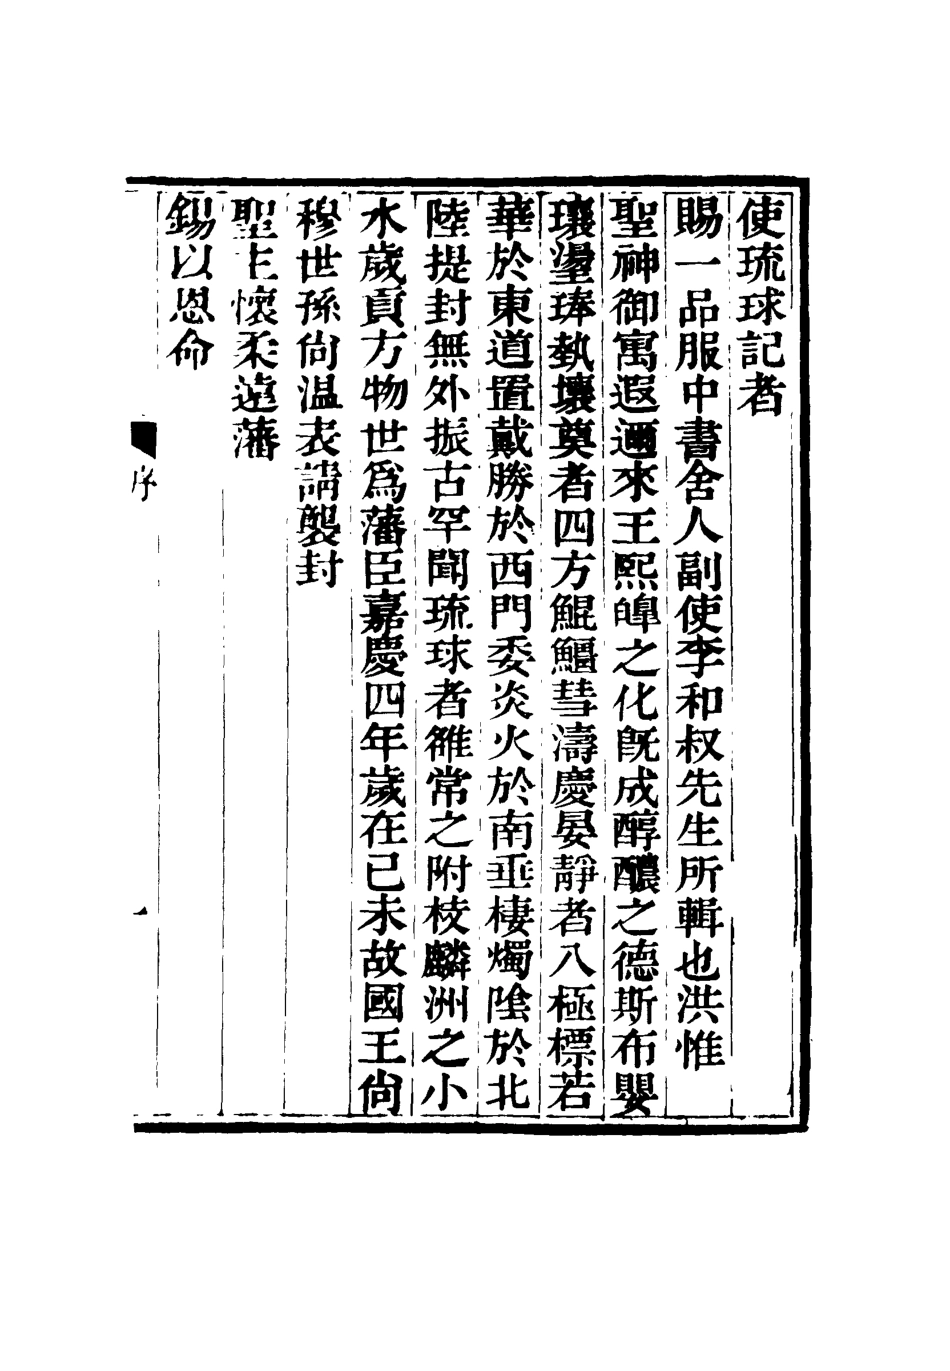 使琉球記者
賜一品服中書舍人副使李和叔先生所輯也洪惟
聖神御寓遐邇來王熙皥之化旣成醇醲之德斯布嬰
瓌盪琫執壤奠者四方鯤鱷彗濤慶晏靜者八極標若
華於東道置戴勝於西門委炎火於南垂棲燭陰於北
陸提封無外振古罕聞琉球者雒常之附枝麟洲之小
水歲貢方物世爲藩臣嘉慶四年歲在已未故國王尙
穆世孫尙温表請襲封
聖主懷柔遠藩
錫以恩命
序
一